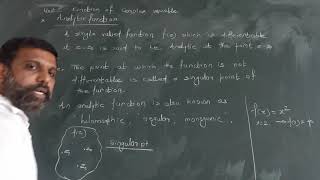 Unit- Function of Complex variable
Analytic function
A single valued function f(z) which is differentiable
at z=z₀ is said to be analytic at the point z=z₀
The point at which the function is not
differentiable is called a singular point of
the function.
An analytic function is also known as
"holomorphic", regular, monogenic.
f(z)
Singular pt
f(x) = x²